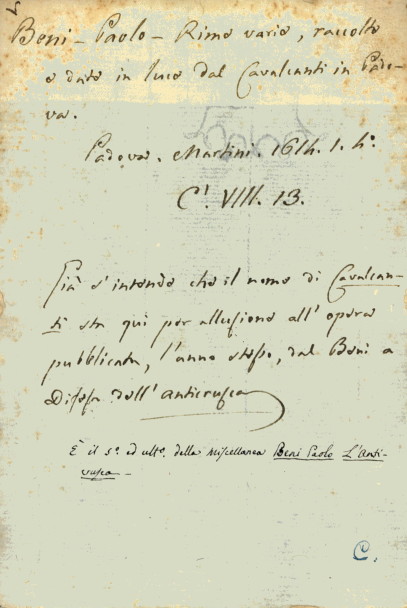 Beni - Paolo - Rime varie, raccolte
e date in luce dal Cavalcanti in Pado-
va.
Padova. Martini. 1614. 1. 4º.
C¹. VIII. 13.
Già s'intende che il nome di Cavalcan-
ti sta qui per allusione all'opera
pubblicata, l'anno stesso, dal Beni a
Difesa dell'anticrusca
È il 5º. ed ultº. della miscellanea Beni Paolo L'Anti-
crusca -
C.